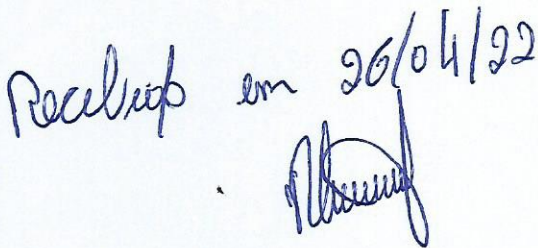 Recebido em 26/04/22